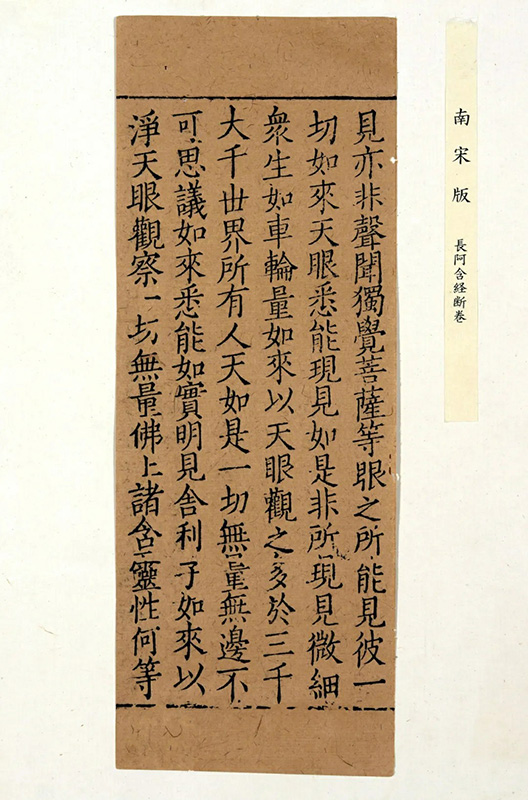 南宋版 長阿含経断巻
見亦非聲聞獨覺菩薩等眼之所能見彼一
切如來天眼悉能現見如是非所現見微細
衆生如車輪量如來以天眼觀之多於三千
大千世界所有人天如是一切無量無邊不
可思議如來悉能如實明見舍利子如來以
淨天眼觀察一切無量佛上諸含靈性何等